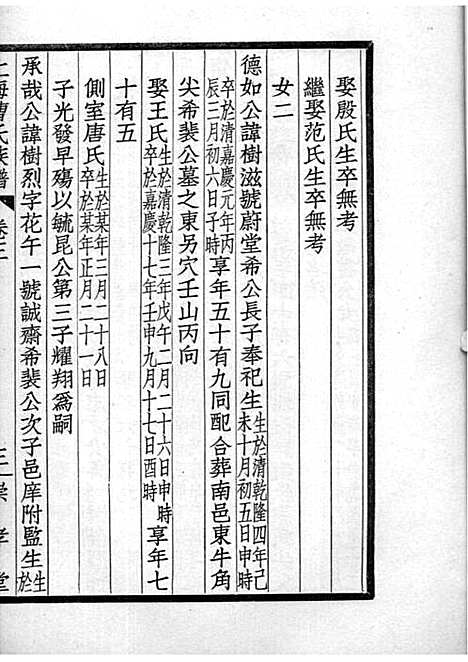 娶殷氏生卒無考
繼娶范氏生卒無考
女二
德如公諱樹滋號蔚堂希公長子奉祀生生於清乾隆四年己未十月初五日申時
卒於清嘉慶元年丙辰三月初六日子時享年五十有九同配合葬南邑東牛角
尖希裴公墓之東另穴壬山丙向
娶王氏生於乾隆三年戊午二月二十六日申時卒於嘉慶十七年壬申九月十七日酉時享年七
十有五
側室唐氏生於某年三月二十八日卒於某年正月二十一日
子光發早殤以毓昆公第三子耀翔爲嗣
承哉公諱樹烈字花午一號誠齋希裴公次子邑庠附監生生於
上海曹氏族譜 卷三 三 崇孝堂